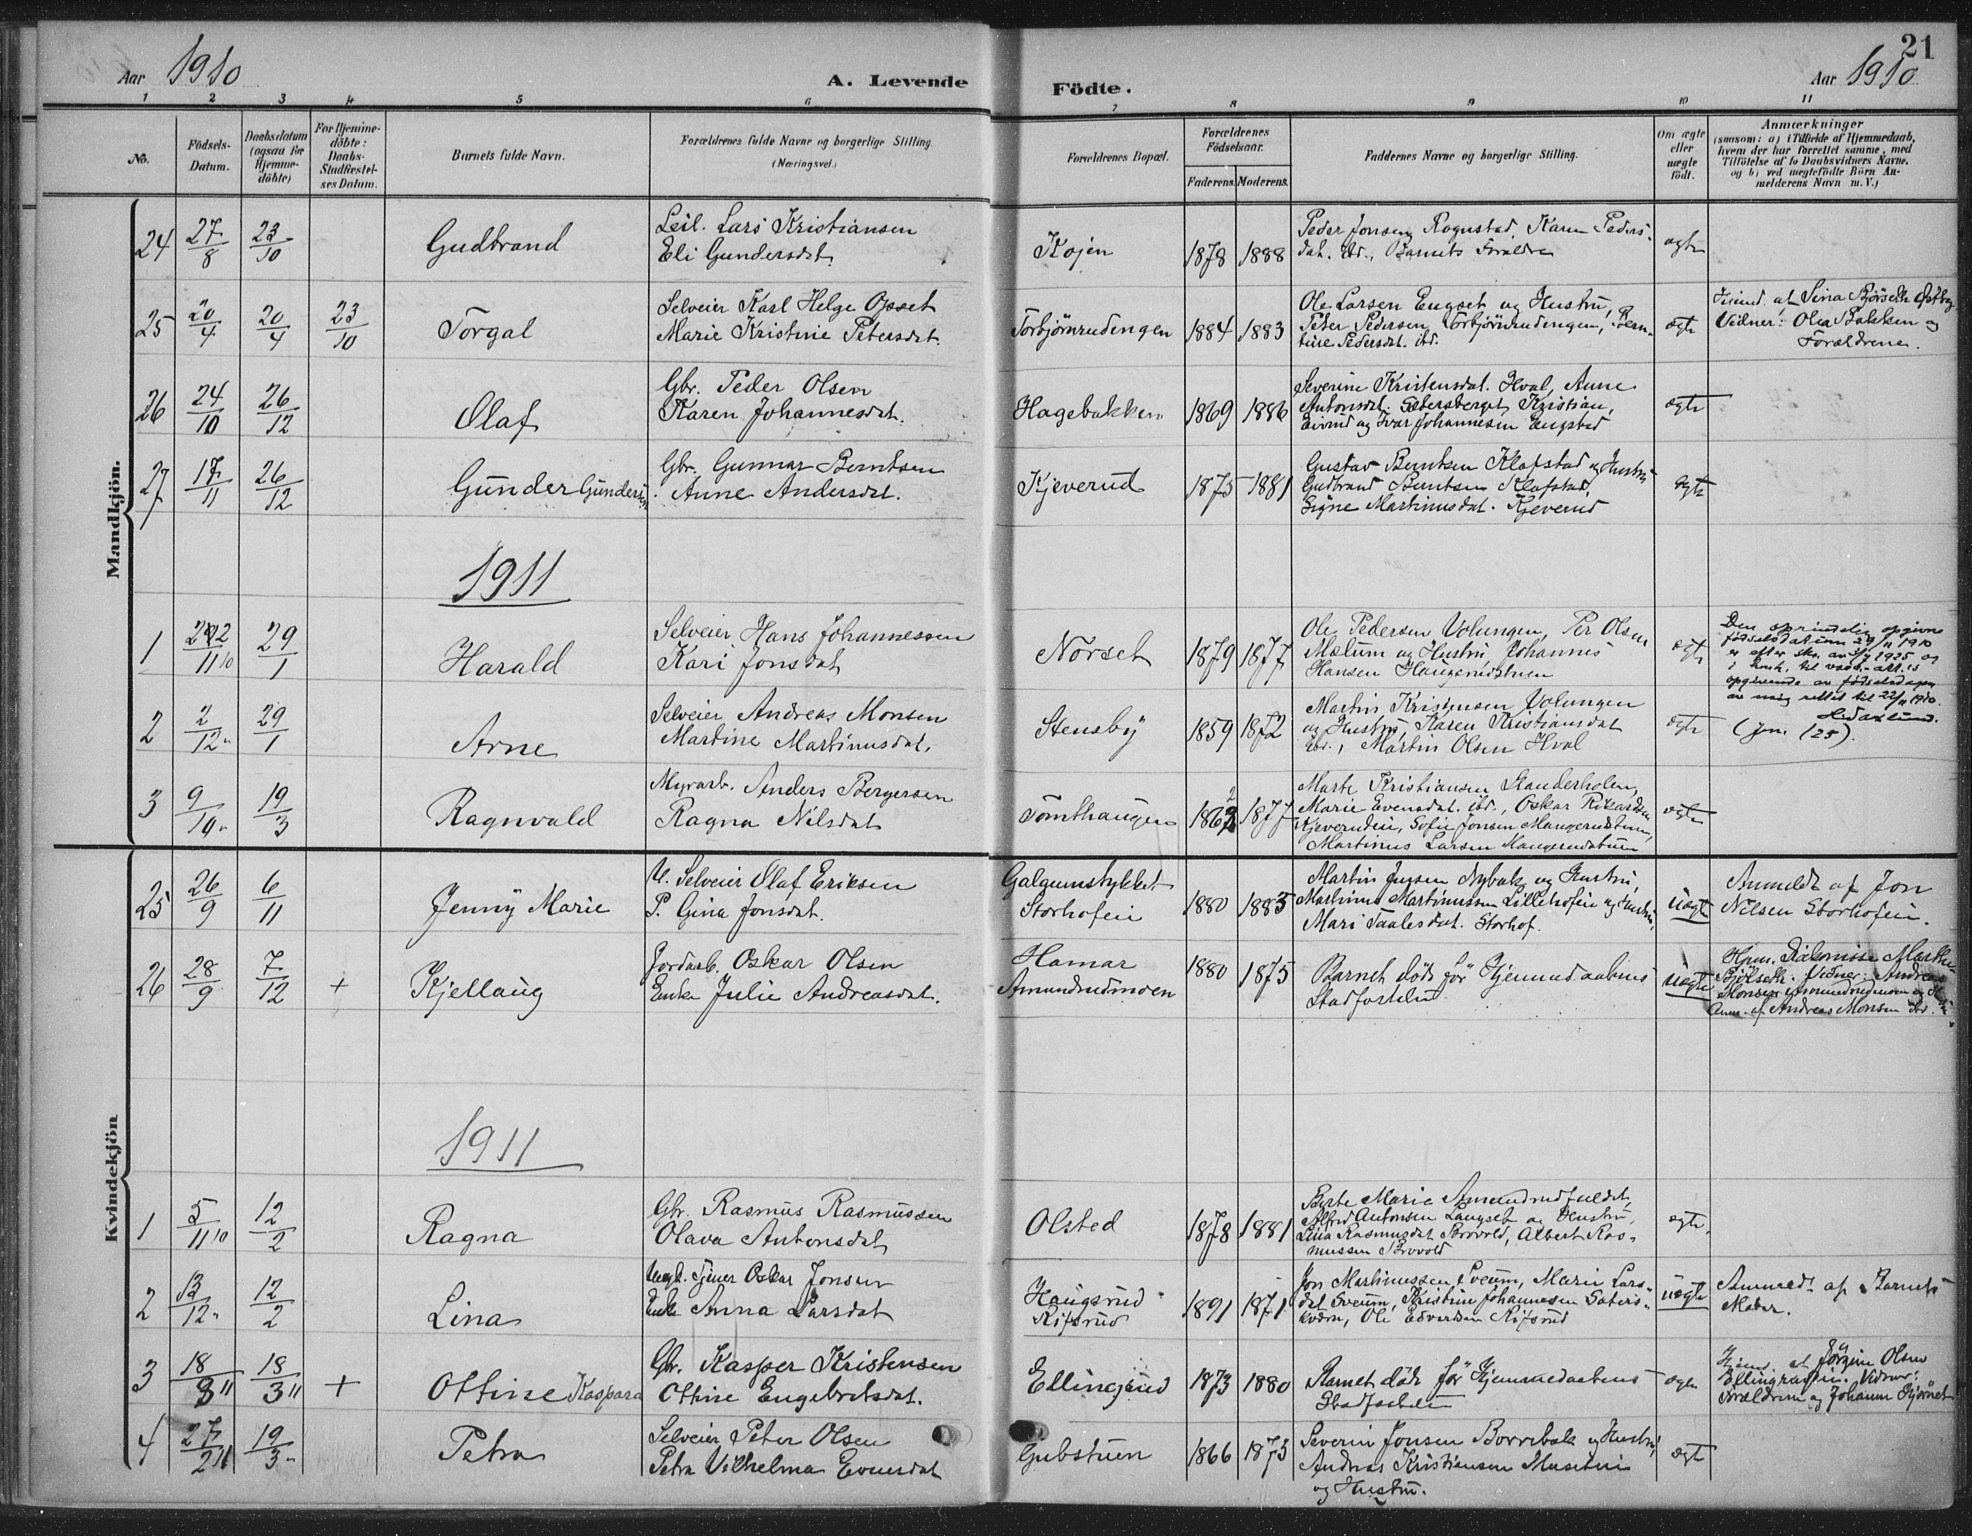 21
Aar 1910
A. Levende
Födte.
Aar 1910
1 2 3 4 5 6 7 8 9 10 11
No.
Födsels-Datum.
Daabsdatum (ogsaa for Hjemme-döbte)
For Hjemme-döbte: Daabs-Stadfæstel-ses Datum.
Barnets fulde Navn.
Forældrenes fulde Navne og borgerlige Stilling (Næringsvei.)
Forældrenes Bopæl.
Forældrenes Födselsaar.
Faderens. Moderens.
Faddernes Navne og borgerlige Stilling.
Om ægte eller uægte födt.
Anmærkninger
(saasom: a) i Tilfælde af Hjemmedaab,
hvem der har forrettet samme, med
Tilföielse af to Daabsvidners Navne,
og b) ved uægtefödte Börn An-
melderens Navn m. V.)
Mandkjön.
24 27/8 23/10 Gudbrand
Leil. Lars Kristiansen
Eli Gundersdat.
Kojen 1878 1888
Peder Jonsen Rognstad, Karen Peders-
dat. ibd., Barnets Forældre
ægte
25 20/4 20/4 23/10 Torgal
Selveier Karl Helge Opset
Marie Kristine Petersdat.
Torbjörnrudengen 1884 1883
Ole Larsen Engset og Hustru,
Peter Pedersen Torbjörnrudengen, Bern-
tine Pedersdat. ibd.
ægte
Hjemd. at Sina Bjørseth Østby
Vidner: Olea Bakken og
Forældrene.
26 24/10 26/12 Olaf
Gbr. Peder Olsen
Karen Johannesdat.
Hagebakken 1869 1886
Severine Kristensdat. Hval, Anne
Antonsdat. Sætersberget, Kristian,
Eivind og Ivar Johannesen Engstad
ægte
27 17/11 26/12 Gunder Gundersen
Gbr. Gunnar Berntsen
Anne Andersdat.
Kjeverud 1875 1881
Gustav Berntsen Klafstad og Hustru
Gudbrand Berntsen Klafstad,
Signe Martinusdat. Kjeverud
ægte
1911
1 22/11 10 29/1 Harald
Selveier Hans Johannessen
Kari Jonsdat
Norset 1879 1877
Ole Pedersen Volungen, Per Olsen
Mælum og Hustru, Johannes
Hansen Haugerudstuen
ægte
Den oprindelig opgivne
fødselsdatum 29/11 1910
er efter 1925 og
i henh. til
opgivende av fødselsdagen
av mig rettet til 22/11 1910.
Hedaxlund.
(jnr. /25).
2 2/12 29/1 Arne
Selveier Andreas Monsen
Martine Martinusdat.
Stensby 1859 1872
Martin Kristensen Volungen
og Hustru, Karen Kristiansdat
ibd., Martin Olsen Hval
ægte
3 9/10 19/3 Ragnvald
Myrarb. Anders Bergersen
Ragna Nilsdat
Tomthaugen 1862 1877
Marte Kristiansen Standerholen,
Marie Evensdat. ibd., Oskar Rikardsen
Kjeverudsei, Sofie Jonsen Haugerudstuen,
Martinus Larsen Haugerudstuen
ægte
Kvindekjön
25 26/9 6/11 Jenny Marie
U. Selveier Olaf Eriksen
P. Gina Jonsdat.
Galgumstykket
Storhofen
1880 1883
Martin Jensen Nybak og Hustru,
Martinus Martinussen Lillehofen og Hustru,
Mari Paalesdat. Storhof.
uægte
Anmeldt af Jon
Nilsen Storhofen.
26 28/9 7/12 + Kjellaug
Jordarb. Oskar Olsen
Enke Julie Andreasdat.
Hamar
Amundrudmoen
1880 1875
Barnet död för Hjemmedaabens
Stadfæstelse
uægte
Hjem. Frk. Marthe
Björseth. Vidner: Andreas
Monsen Amundrudmoen og
Anm. af Andreas Monsen ibd.
1911
1 5/11 10 12/2 Ragna
Gbr. Rasmus Rasmussen
Olava Antonsdat
Olsted 1878 1881
Berte Marie Amundrudfeldet,
Alfred Antonsen Langset og Hustru,
Lina Rasmusdat Brovold, Albert Ras-
mussen Brovold
ægte.
2 13/12 12/2 Lina
Ungk. Tjener Oskar Jonsen
Enke Anna Larsdat
Haugsrud
Rifsrud
1891 1871
Jon Martinussen Sveum, Marie Lars-
dat Sveum, Kristian Johannesen Sæters-
kvern, Ole Edvardsen Rifsrud
uægte
Anmeldt af Barnets
Moder.
3 18/3 11 18/3 11 + Ottine Kaspara
Gbr. Kasper Kristensen
Ottine Engebretsdat.
Ellingsrud 1873 1880
Barnet död för Hjemmedaabens
Stadfæstelse
ægte
Hjemd. at Jörgine Olsen
Ellingrudsei. Vidner:
Forældrene og Johanne Bjørnet
4 27/2 11 19/3 Petra
Selveier Peter Olsen
Petra Vilhelma Evensdat
Gubstuen 1866 1873
Severin Jonsen Borrebak og Hustru,
Andreas Kristiansen Musetuen
og Hustru.
ægte